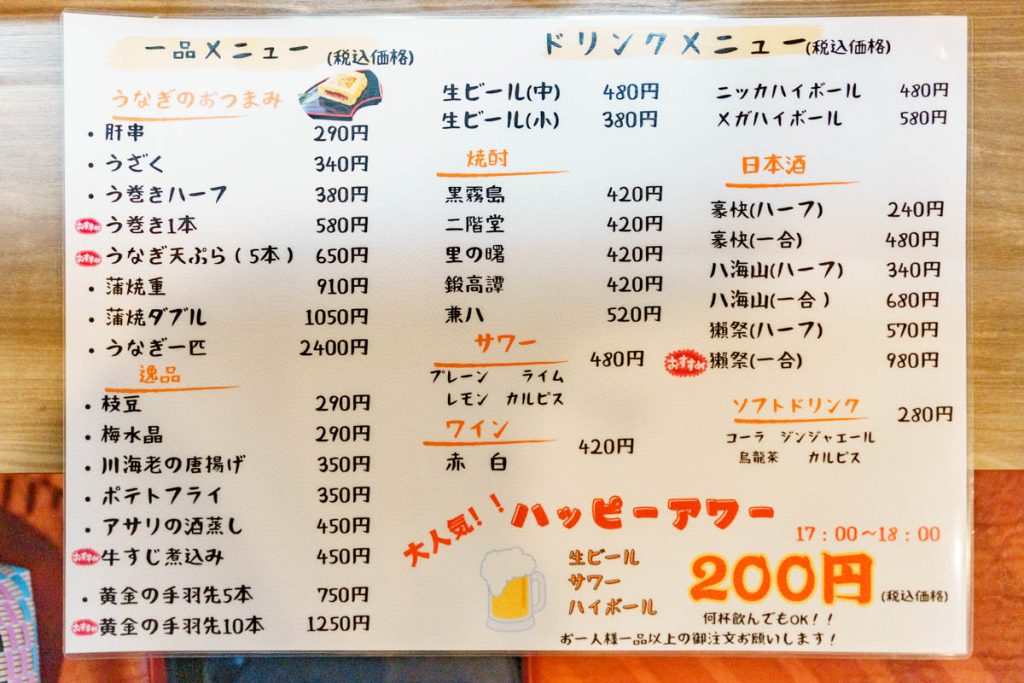 一品メニュー (税込価格)
うなぎのおつまみ
・肝串 290円
・うざく 340円
・う巻きハーフ 380円
おすすめ う巻き1本 580円
おすすめ うなぎ天ぷら(5本) 650円
・蒲焼重 910円
・蒲焼ダブル 1050円
・うなぎ一匹 2400円
逸品
・枝豆 290円
・梅水晶 290円
・川海老の唐揚げ 350円
・ポテトフライ 350円
・アサリの酒蒸し 450円
おすすめ 牛すじ煮込み 450円
・黄金の手羽先5本 750円
おすすめ 黄金の手羽先10本 1250円
ドリンクメニュー (税込価格)
生ビール(中) 480円
生ビール(小) 380円
焼酎
黒霧島 420円
二階堂 420円
里の曙 420円
鍛高譚 420円
兼八 520円
サワー 480円
プレーン ライム
レモン カルピス
ワイン 420円
赤 白
ニッカハイボール 480円
メガハイボール 580円
日本酒
豪快(ハーフ) 240円
豪快(一合) 480円
八海山(ハーフ) 340円
八海山(一合) 680円
獺祭(ハーフ) 570円
おすすめ 獺祭(一合) 980円
ソフトドリンク 280円
コーラ ジンジャエール
烏龍茶 カルピス
大人気!! ハッピーアワー
17:00~18:00
生ビール
サワー
ハイボール
200円 (税込価格)
何杯飲んでもOK!!
お一人様一品以上の御注文お願いします!